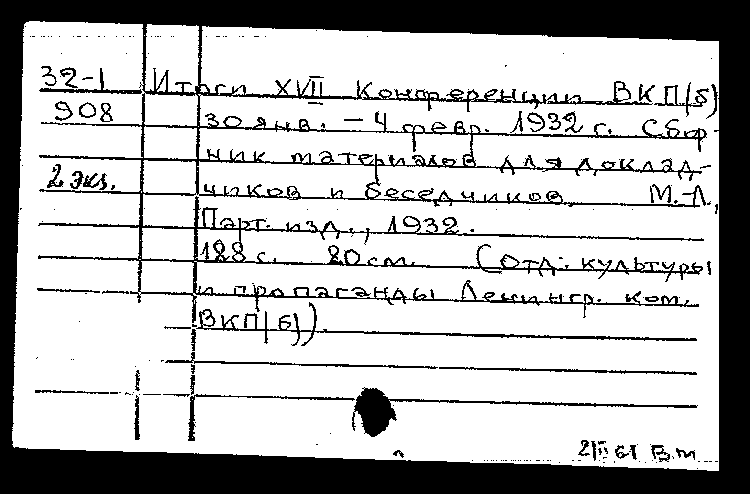 32-1 Итоги XVII Конференции ВКП(б)
908 30 янв. – 4 февр. 1932 г. Сбор-
ник материалов для доклад-
2 экз. чиков и беседчиков. М.-Л.,
Парт. изд., 1932.
188 с. 20 см. (Отд. культуры
и пропаганды Ленингр. ком.
ВКП(б)).
2/II 61 В.т